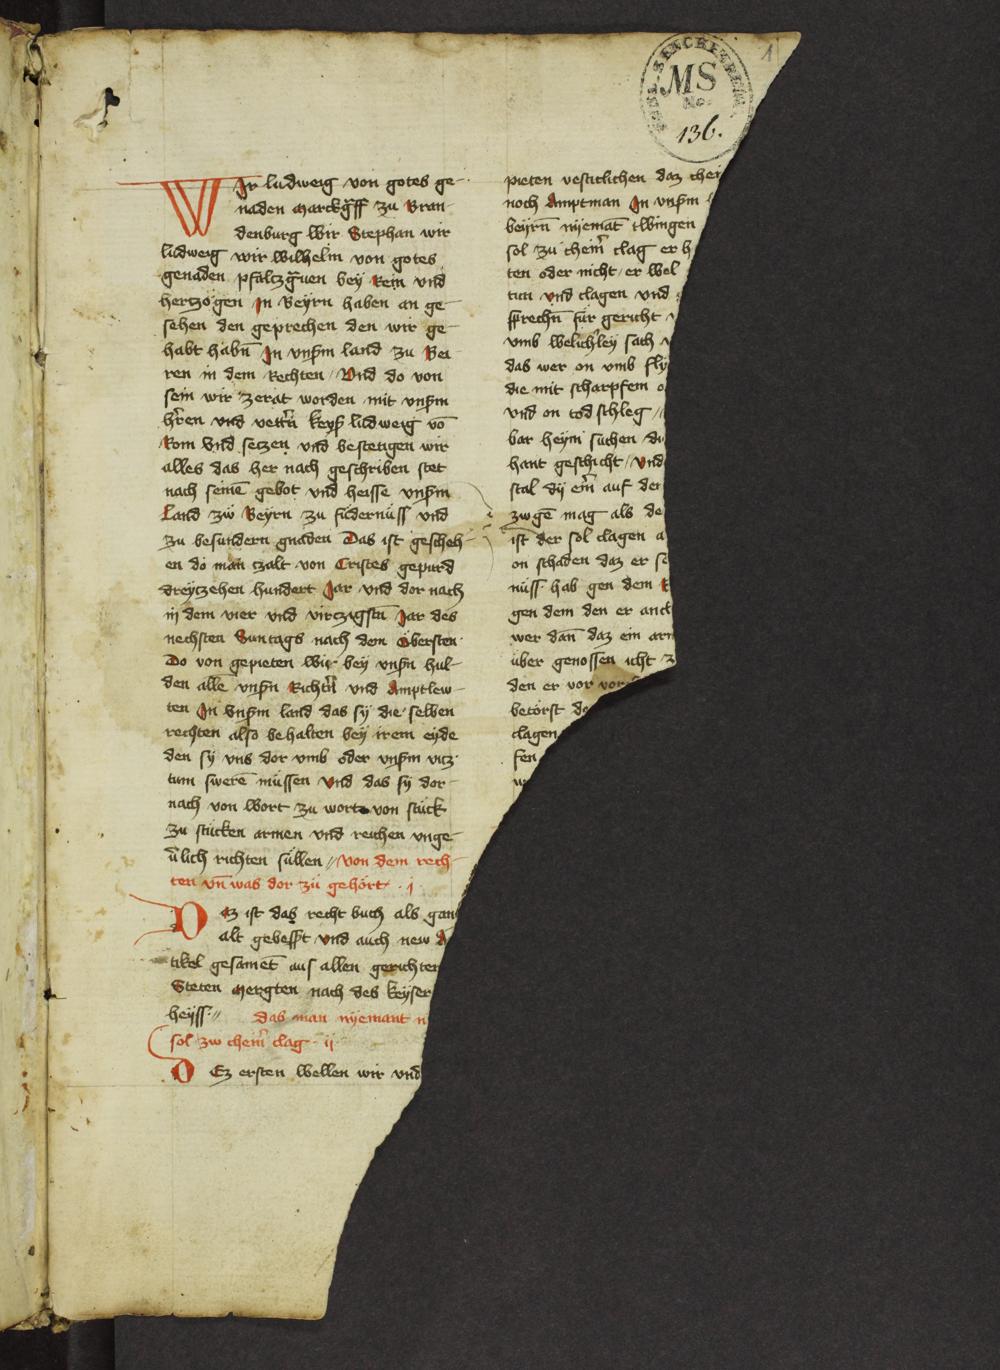 1
MS
No.
136.
WIr ludweig von gotes ge-
naden Marckgff zu Bran-
denburg wir Stephan wir
ludweig wir wilhelm von gotes
genaden pfaltzguen bey Rein vnd
hertzogen In Beyrn haben an ge-
sehen den geprechen den wir ge-
habt habn̄ In vnserm land zu Bei-
ren in dem Rechten / Vnd do von
sein wir zerat worden mit vnserm
hren vnd vettern keyser ludweig vō
Rom vnd setzen vnd bestetigen wir
alles das her nach geschriben stet
nach seinē gebot vnd heisse vnserm
Land zw Beyrn zu fudernüss vnd
zu besundern gnaden Das ist gescheh-
en do man tzalt von Cristes gepurd
dreytzehen hundert Jar vnd dor nach
in dem vier vnd virczigsten Jar des
nechsten Suntags nach dem Obersten
Do von gepieten wir bey vnsern hul-
den alle vnsern Richtern vnd Amptlew-
ten In vnserm land das sy die selben
rechten also behalten bey irem eyde
den sy vns dor vmb oder vnserm vicz-
tum swerē müssen vnd das sy dor-
nach von wort zu wort von stuck
zu stucken armen vnd reichen vnge-
ũlich richten sullen // von dem rech-
ten vn̄ was dor zu gehört · i
Dcz ist das recht buch als gan
alt gebessert vnd auch new A
tikel gesamet aus allen gerichten
Steten Mergten nach des keyser
heyss // das man nyemant n
sol zw cheim̃ clag · ii
DEz ersten wellen wir vnd
pieten vesticlichen daz chei
noch Amptman In vnserm l
beyrn̄ nyemāt twingen
sol zu cheim̃ clag er h
ten oder nicht / er wel
tun vnd clagen vnd
sprechn̄ für gericht v
vmb welichs̃ley sach v
das wer on vmb fly
die mit scharpfem o
vnd on tod schleg //
bar heym suchen di
hant geschicht / vnd
stal dy em̃ auf der
zwgē mag als de
ist der sol clagen a
on schaden daz er se
nuss hab gen dem R
gen dem den er ancl
wer dan̄ daz ein arm
über genossen icht z
den er vor vor
betorst do
clagen
fen
w